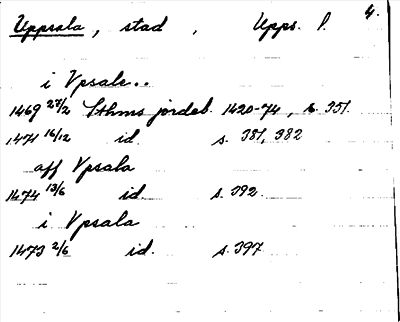 4.
Uppsala, stad, Upps. l.
i Vpsale..
1469 27/2 Sthms jordeb. 1420-74, s. 351.
1471 16/12 id. s. 381, 382
aff Vpsala
1474 13/6 id. s. 392.
i Vpsala
1473 2/6 id. s. 397.